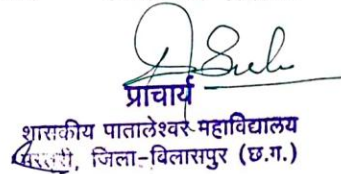 प्राचार्य
शासकीय पातालेश्वर महाविद्यालय
मस्तूरी, जिला-बिलासपुर (छ.ग.)